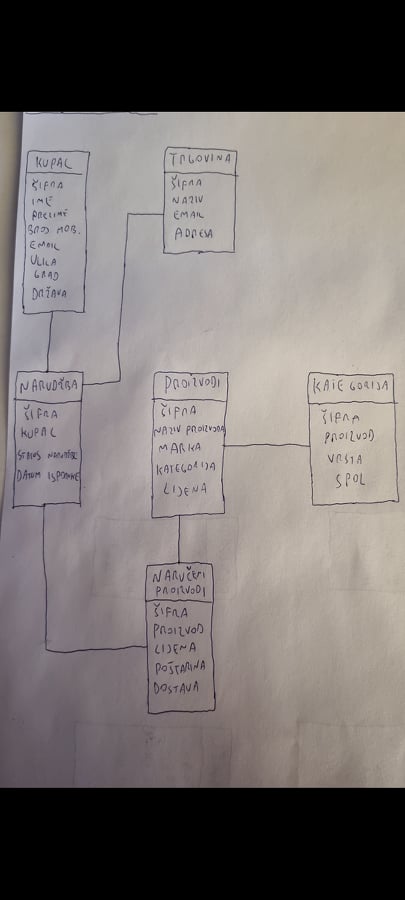 KUPAC
ŠIFRA
IME
PREZIME
BROJ MOB.
EMAIL
ULICA
GRAD
DRŽAVA
TRGOVINA
ŠIFRA
NAZIV
EMAIL
ADRESA
NARUDŽBA
ŠIFRA
KUPAC
STATUS NARUDŽBE
DATUM ISPORUKE
PROIZVODI
ŠIFRA
NAZIV PROIZVODA
MARKA
KATEGORIJA
CIJENA
KATEGORIJA
ŠIFRA
PROIZVOD
VRSTA
SPOL
NARUČENI
PROIZVODI
ŠIFRA
PROIZVOD
CIJENA
POŠTARINA
DOSTAVA